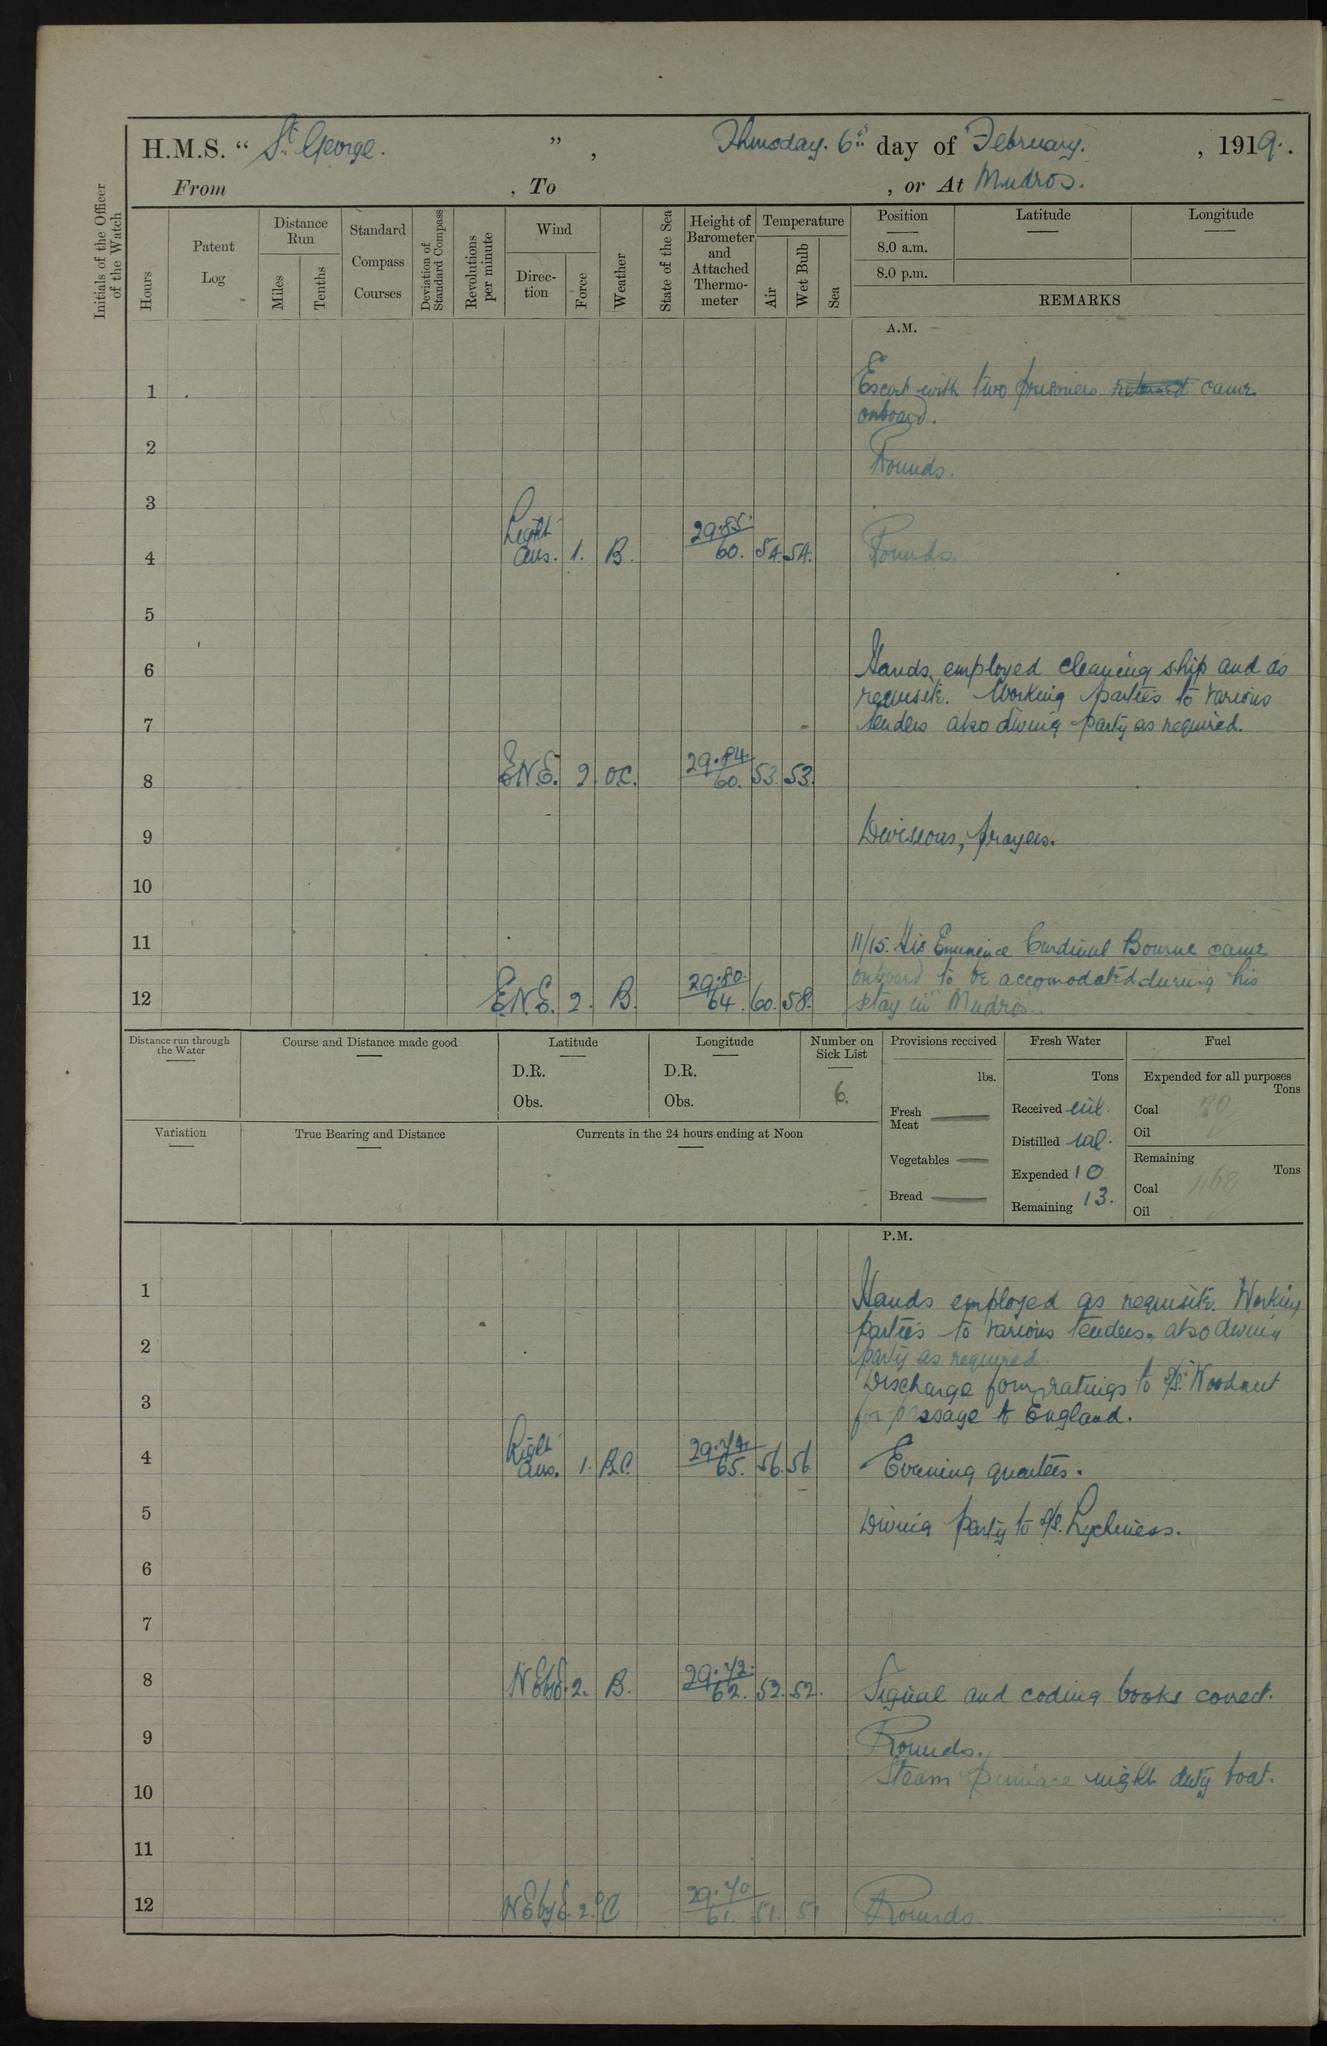 H.M.S. " St. George. ", Thursday. 6th day of February. , 1919.
From , To , or At Mudros.
Initials of the Officer of the Watch
Hours
Patent Log
Distance Run
Miles
Tenths
Standard Compass Courses
Deviation of Standard Compass
Revolutions per minute
Wind
Direc-tion
Force
Weather
State of the Sea
Height of Barometer and Attached Thermo-meter
Temperature
Air
Wet Bulb
Sea
Position
8.0 a.m.
8.0 p.m.
Latitude
Longitude
REMARKS
A.M.
1 Escort with two prisoners returned came
onboard.
2 Rounds.
3
4 Light airs. 1. B. 29.85. 60. 54. 54. Rounds.
5
6 Hands employed cleaning ship and as
requisite. Working parties to various
7 tenders also diving party as required.
8 E.N.E. 2. O.C. 29.84. 60. 53. 53.
9 Divisions, prayers.
10
11 11/15. His Eminence Cardinal Bourne came
onboard to be accomodated during his
12 E.N.E. 2. B. 29.80. 64. 60. 58. stay in Mudros.
Distance run through the Water
Course and Distance made good
Latitude
D.R.
Obs.
Longitude
D.R.
Obs.
Number on Sick List
6.
Provisions received
lbs.
Fresh Meat
Vegetables
Bread
Fresh Water
Tons
Received nil.
Distilled nil.
Expended 10
Remaining 13.
Fuel
Expended for all purposes
Tons
Coal
Oil
Remaining
Tons
Coal
Oil
Variation
True Bearing and Distance
Currents in the 24 hours ending at Noon
P.M.
1 Hands employed as requisite. Working
parties to various tenders, also diving
2 party as required.
Discharge four ratings to S/S. Woodnut
3 for passage to England.
4 Light airs. 1. B.C. 29.74. 65. 56. 56. Evening quarters.
5 Diving party to S/S. Lychness.
6
7
8 N.EbyE. 2. B. 29.72. 62. 52. 52. Signal and coding books correct.
9 Rounds.
Steam pinnace night duty boat.
10
11
12 N.EbyE. 2. OC 29.70 61. 51. 51 Rounds.